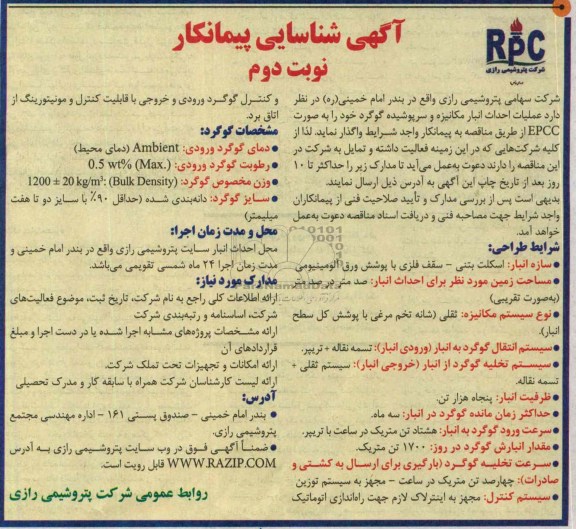 RPC
شرکت پتروشیمی رازی
سهامی
آگهی شناسایی پیمانکار
نوبت دوم
شرکت سهامی پتروشیمی رازی واقع در بندر امام خمینی(ره) در نظر
دارد عملیات احداث انبار مکانیزه و سرپوشیده گوگرد خود را به صورت
EPCC از طریق مناقصه به پیمانکار واجد شرایط واگذار نماید. لذا از
کلیه شرکت‌هایی که در این زمینه فعالیت داشته و تمایل به شرکت در
این مناقصه را دارند دعوت به‌عمل می‌آید تا مدارک زیر را حداکثر تا ۱۰
روز بعد از تاریخ چاپ این آگهی به آدرس ذیل ارسال نمایند.
بدیهی است پس از بررسی مدارک و تأیید صلاحیت فنی از پیمانکاران
واجد شرایط جهت مصاحبه فنی و دریافت اسناد مناقصه دعوت به‌عمل
خواهد آمد.
شرایط طراحی:
● سازه انبار: اسکلت بتنی - سقف فلزی با پوشش ورق آلومینیومی
● مساحت زمین مورد نظر برای احداث انبار: صد متر در صد متر
(به‌صورت تقریبی)
● نوع سیستم مکانیزه: ثقلی (شانه تخم مرغی با پوشش کل سطح
انبار).
● سیستم انتقال گوگرد به انبار (ورودی انبار): تسمه نقاله + تریپر.
● سیستم تخلیه گوگرد از انبار (خروجی انبار): سیستم ثقلی +
تسمه نقاله.
● ظرفیت انبار: پنجاه هزار تن.
● حداکثر زمان مانده گوگرد در انبار: سه ماه.
● سرعت ورود گوگرد به انبار: هشتاد تن متریک در ساعت با تریپر.
● مقدار انبارش گوگرد در روز: ۱۷۰۰ تن متریک.
● سرعت تخلیه گوگرد (بارگیری برای ارسال به کشتی و
صادرات): چهارصد تن متریک در ساعت - مجهز به سیستم توزین
● سیستم کنترل: مجهز به اینترلاک لازم جهت راه‌اندازی اتوماتیک
و کنترل گوگرد ورودی و خروجی با قابلیت کنترل و مونیتورینگ از
اتاق برد.
مشخصات گوگرد:
● دمای گوگرد ورودی: Ambient (دمای محیط)
● رطوبت گوگرد ورودی: 0.5 wt% (Max.)
● وزن مخصوص گوگرد: (Bulk Density) :1200 ± 20 kg/m³
● سایز گوگرد: دانه‌بندی شده (حداقل ۹۰٪ با سایز دو تا هفت
میلیمتر)
محل و مدت زمان اجرا:
محل احداث انبار سایت پتروشیمی رازی واقع در بندر امام خمینی و
مدت زمان اجرا ۲۴ ماه شمسی تقویمی می‌باشد.
مدارک مورد نیاز:
ارائه اطلاعات کلی راجع به نام شرکت، تاریخ ثبت، موضوع فعالیت‌های
شرکت، اساسنامه و رتبه‌بندی شرکت
ارائه مشخصات پروژه‌های مشابه اجرا شده یا در دست اجرا و مبلغ
قراردادهای آن
ارائه امکانات و تجهیزات تحت تملک شرکت.
ارائه لیست کارشناسان شرکت همراه با سابقه کار و مدرک تحصیلی
آدرس:
● بندر امام خمینی - صندوق پستی ۱۶۱ - اداره مهندسی مجتمع
پتروشیمی رازی.
● ضمناً آگهی فوق در وب سایت پتروشیمی رازی به آدرس
WWW.RAZIP.COM قابل رویت است.
روابط عمومی شرکت پتروشیمی رازی